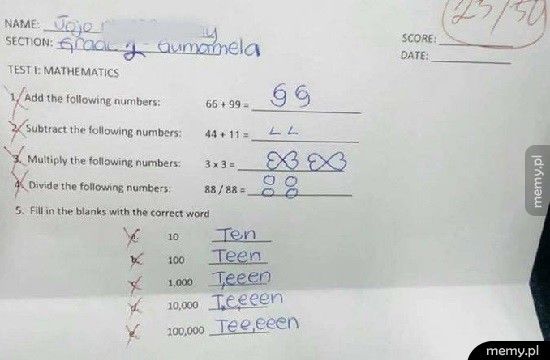 NAME: Jojo y
SECTION: Grade 2 - Gumamela
SCORE:
DATE:
TEST I: MATHEMATICS
1. Add the following numbers: 66 + 99 =
2. Subtract the following numbers: 44 + 11 = LL
3. Multiply the following numbers: 3 x 3 =
4. Divide the following numbers: 88 / 88 =
5. Fill in the blanks with the correct word
a. 10 Ten
b. 100 Teen
c. 1.000 T,eeen
d. 10,000 Te,eeen
e. 100,000 Tee,eeen
memy.pl
memy.pl